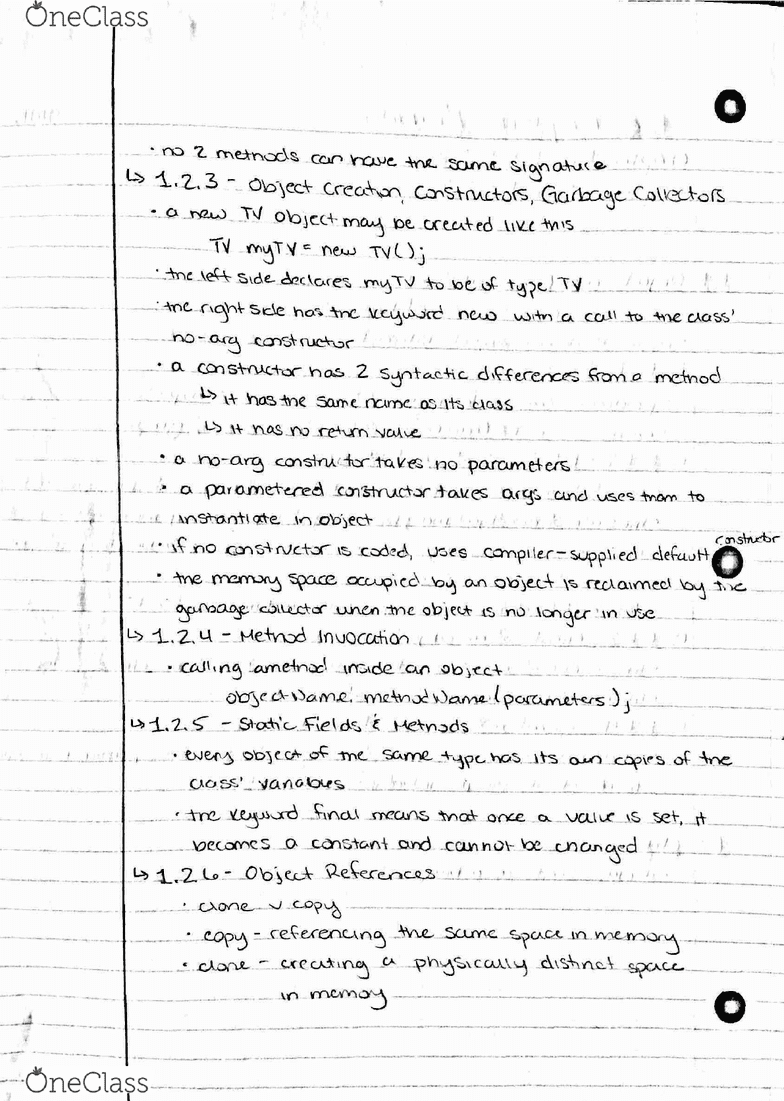 OneClass
· no 2 methods can have the same signature
↳ 1.2.3 - Object Creation, Constructors, Garbage Collectors
· a new TV object may be created like this
TV myTV = new TV();
· the left side declares myTV to be of type TV
· the right side has the keyword new with a call to the class'
no-arg constructor
· a constructor has 2 syntactic differences from a method
↳ it has the same name as its class
↳ it has no return value
· a no-arg constructor takes no parameters
· a parametered constructor takes args and uses them to
instantiate in object
constructor
· if no constructor is coded, uses compiler-supplied default
· the memory space occupied by an object is reclaimed by the
garbage collector when the object is no longer in use
↳ 1.2.4 - Method Invocation
· calling a method inside an object
objectName.methodName(parameters);
↳ 1.2.5 - Static Fields & Methods
· every object of the same type has its own copies of the
class' variables
· the keyword final means that once a value is set, it
becomes a constant and cannot be changed
↳ 1.2.6 - Object References
· clone v copy
· copy - referencing the same space in memory
· clone - creating a physically distinct space
in memoy
OneClass